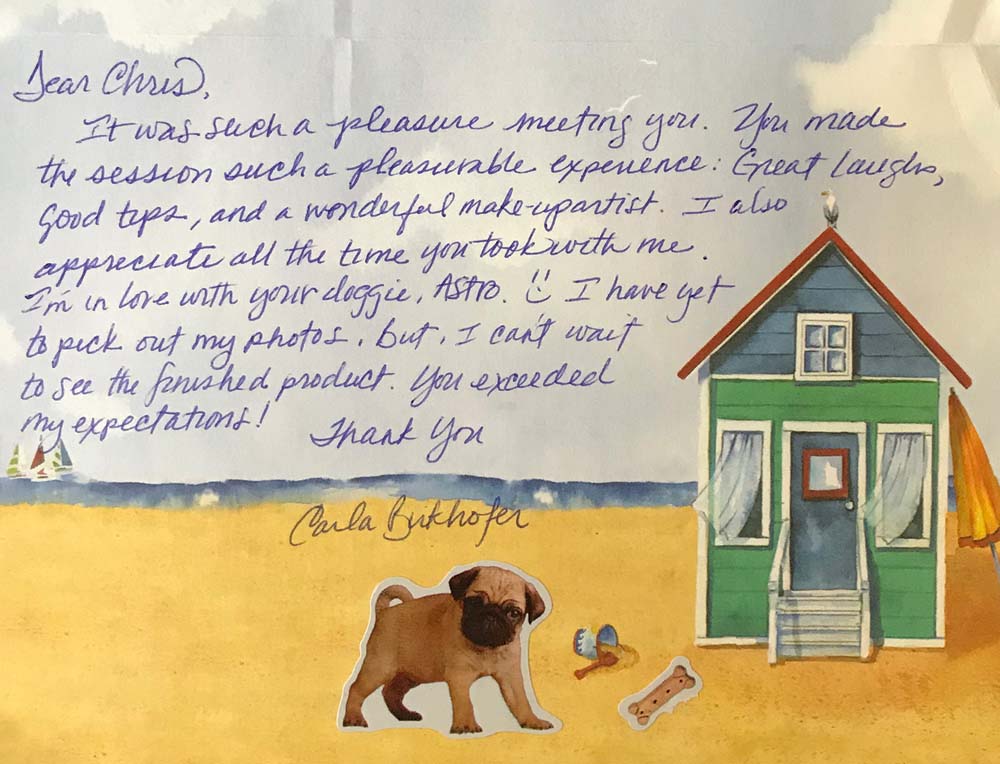 Dear Chris,
It was such a pleasure meeting you. You made
the session such a pleasurable experience: Great laughs,
Good tips, and a wonderful make-up artist. I also
appreciate all the time you took with me.
I'm in love with your doggie, Astro. I have yet
to pick out my photos, but, I can't wait
to see the finished product. You exceeded
my expectations!
Thank You
Carla Birkhofer